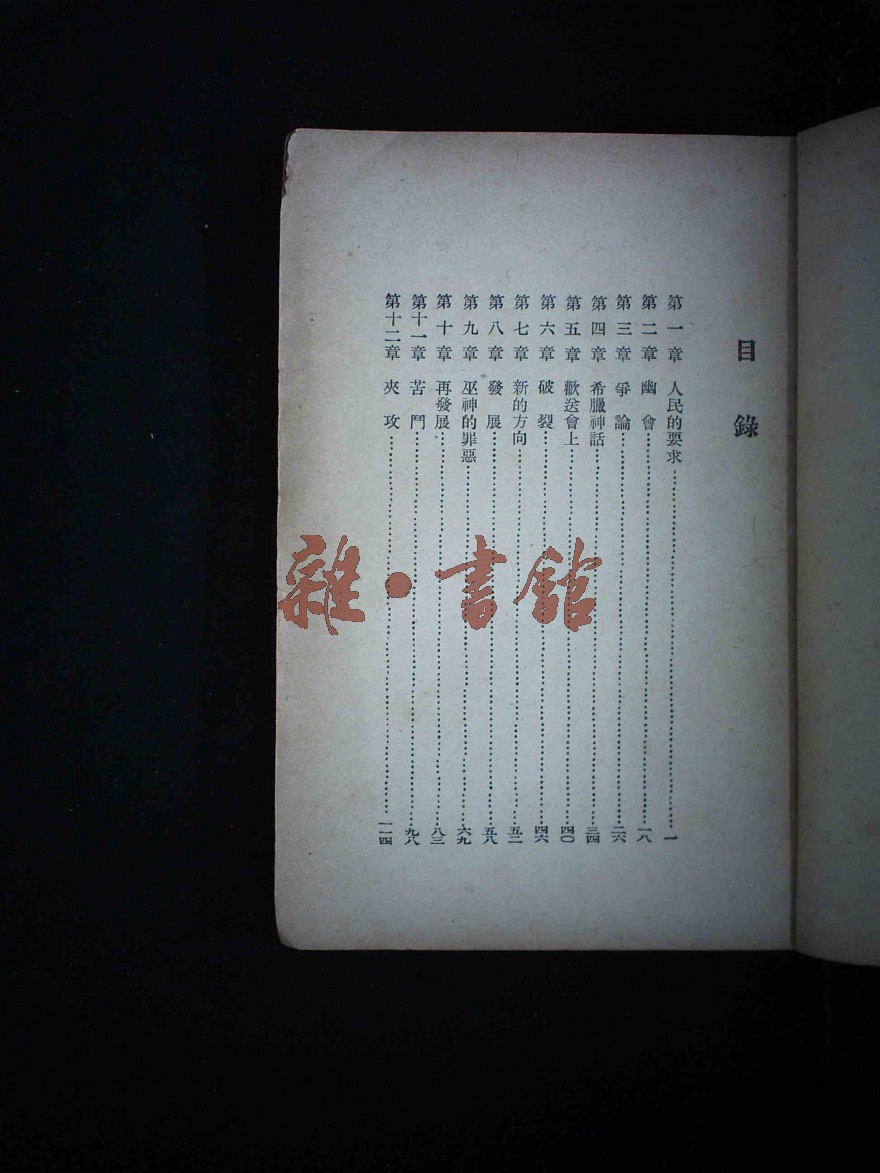 目錄
第一章 人民的要求……一
第二章 幽會……一八
第三章 爭論……二六
第四章 希臘神話……三四
第五章 歡送會上……四〇
第六章 破裂……四六
第七章 新的方向……五二
第八章 發展……五八
第九章 巫神的罪惡……六九
第十章 再發展……八三
第十一章 苦鬥……九八
第十二章 夾攻……一一四
雜·書館